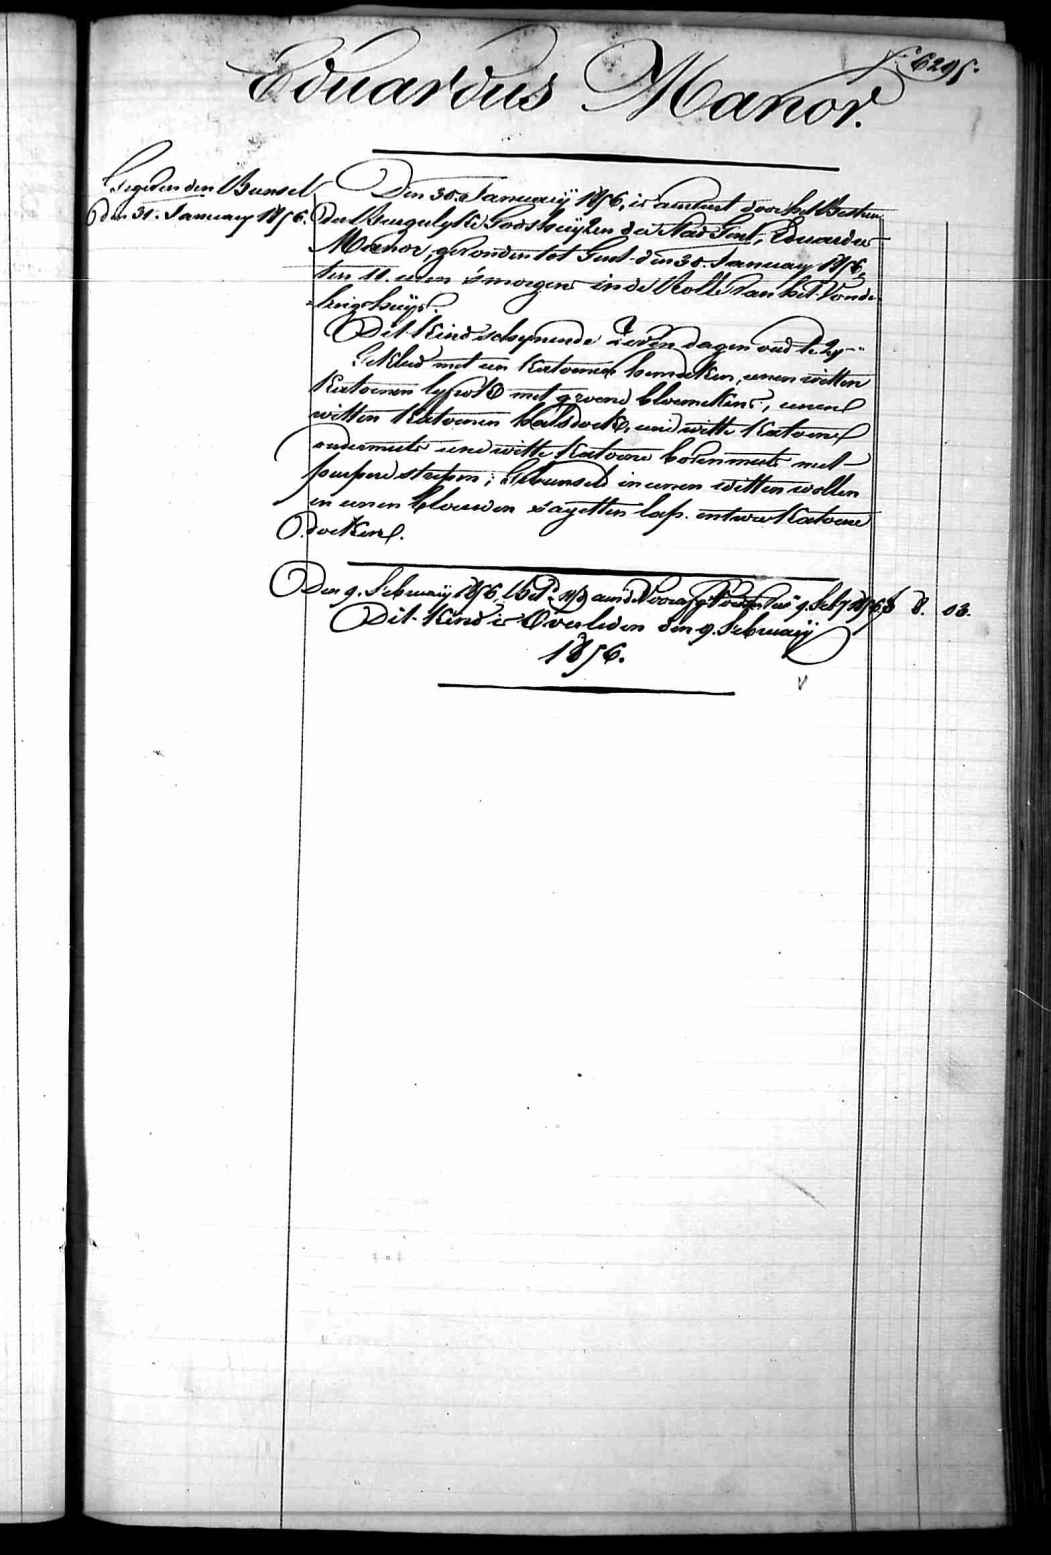 fo 6295.
Eduardus Manor.
Gegeven den Bunsel
den 31. January 1856.
Den 30. Januarij 1856, is aenveert door het Bestuer
der Burgerlyke Godshuijzen der Stad Gent, Eduardus
Manor, gevonden tot Gent den 30. January 1856,
ten 11. uren 's morgens in de Rolle van het Vonde-
lingshuijs.
Dit Kind schynende zeven dagen oud te zyn
Gekleed met een Katoenen hemdeken, eenen witten
Katoenen lyfrok met groene bloemekens, eenen
witten Katoenen halsdoek, eene witte Katoene
ondermuts eene witte Katoene bovenmuts met
purpere strepen; Gebunseld in eenen witten wollen
en eenen blauwen sayetten lap. en twee Katoene
doeken.
Den 9. February 1856, aen de Voorzg 9. feb. 1856 8. 03.
Dit Kind is Overleden den 9. february
1856.